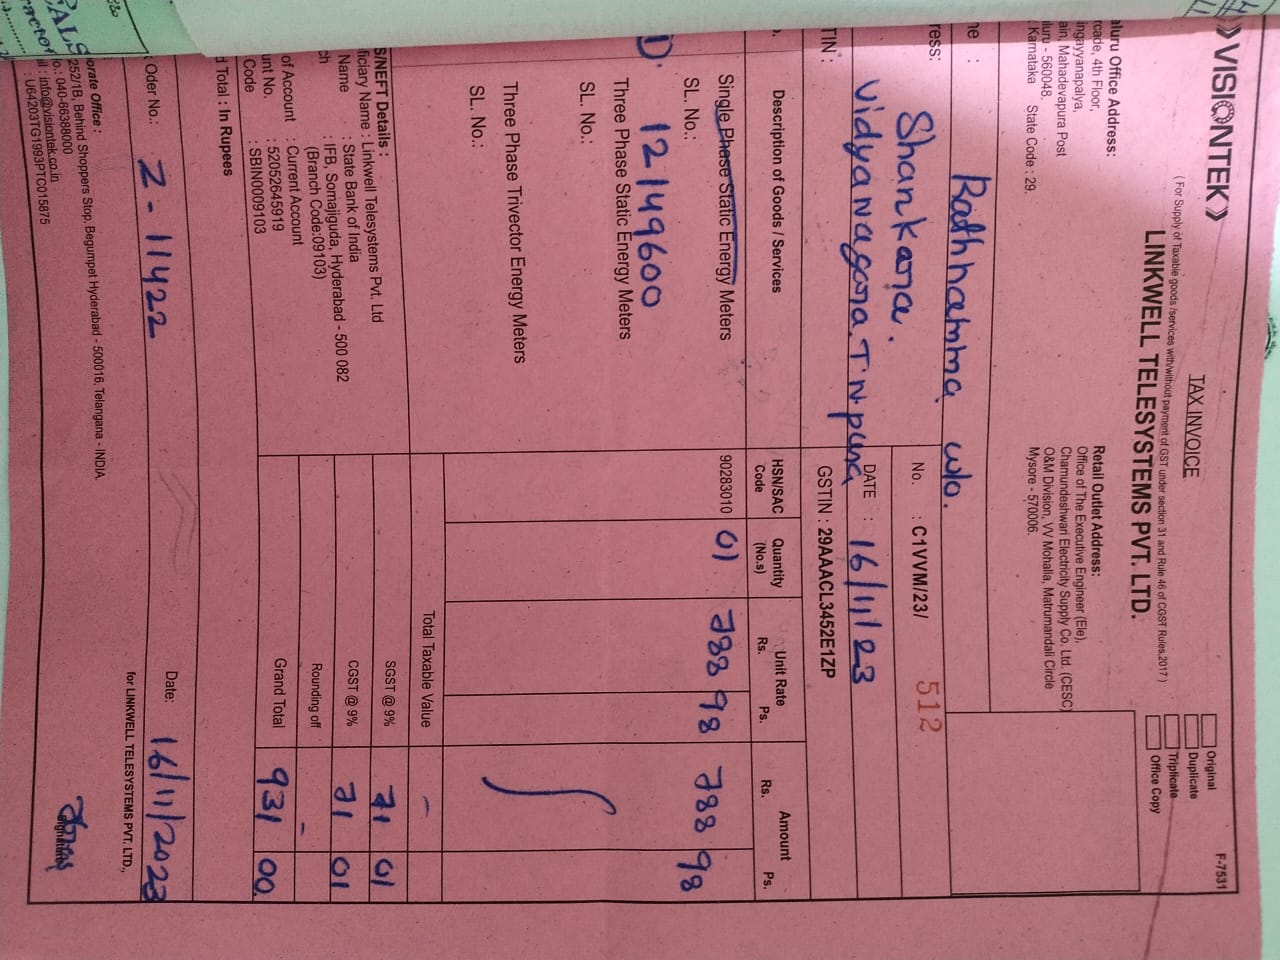 F-7531
TAX INVOICE
Original
Duplicate
Triplicate
Office Copy
VISIONTEK
( For Supply of Taxable goods /services with/without payment of GST under section 31 and Rule 46 of CGST Rules,2017 )
LINKWELL TELESYSTEMS PVT. LTD.
aluru Office Address:
rcade, 4th Floor,
ingayyanapalya,
ain, Mahadevapura Post
luru - 560048.
Karnataka State Code : 29.
Retail Outlet Address:
Office of The Executive Engineer (Ele),
Chamundeshwari Electricity Supply Co. Ltd. (CESC)
O&M Division, VV Mohalla, Matrumandali Circle
Mysore - 570006.
ne : Rathnamma w/o.
ress: Shankara.
Vidyanagara. T.N. pura
No. : C1VVM/23/ 512
DATE : 16/11/23
TIN :
GSTIN : 29AAACL3452E1ZP
Description of Goods / Services
HSN/SAC Code
Quantity (No.s)
Unit Rate Rs. Ps.
Amount Rs. Ps.
Single Phase Static Energy Meters 90283010 01 788 98 788 98
SL. No.:
D. 12149600
Three Phase Static Energy Meters
SL. No.:
Three Phase Trivector Energy Meters
SL. No.:
Total Taxable Value -
S/NEFT Details :
ficiary Name : Linkwell Telesystems Pvt. Ltd
Name : State Bank of India
ch : IFB, Somajiguda, Hyderabad - 500 082
(Branch Code:09103)
of Account : Current Account
unt No. : 52052645919
Code : SBIN0009103
SGST @ 9% 71 01
CGST @ 9% 71 01
Rounding off -
Grand Total 931 00
d Total : In Rupees
Oder No.: Z-11422
Date: 16/11/2023
for LINKWELL TELESYSTEMS PVT. LTD.,
orate Office :
252/1B, Behind Shoppers Stop, Begumpet Hyderabad - 500016. Telangana - INDIA.
o.: 040-66388000
il : info@visiontek.co.in
: U64203TG1993PTC015875